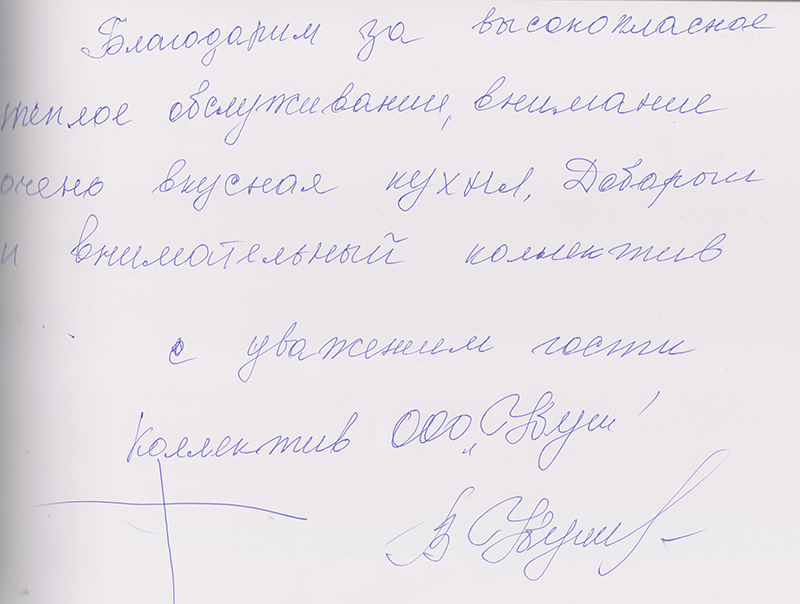 Благодарим за высокопласное
теплое обслуживание, внимание
очень вкусная кухня, Добарыи
и внимательный коллектив
с уважением гости
Коллектив ООО „